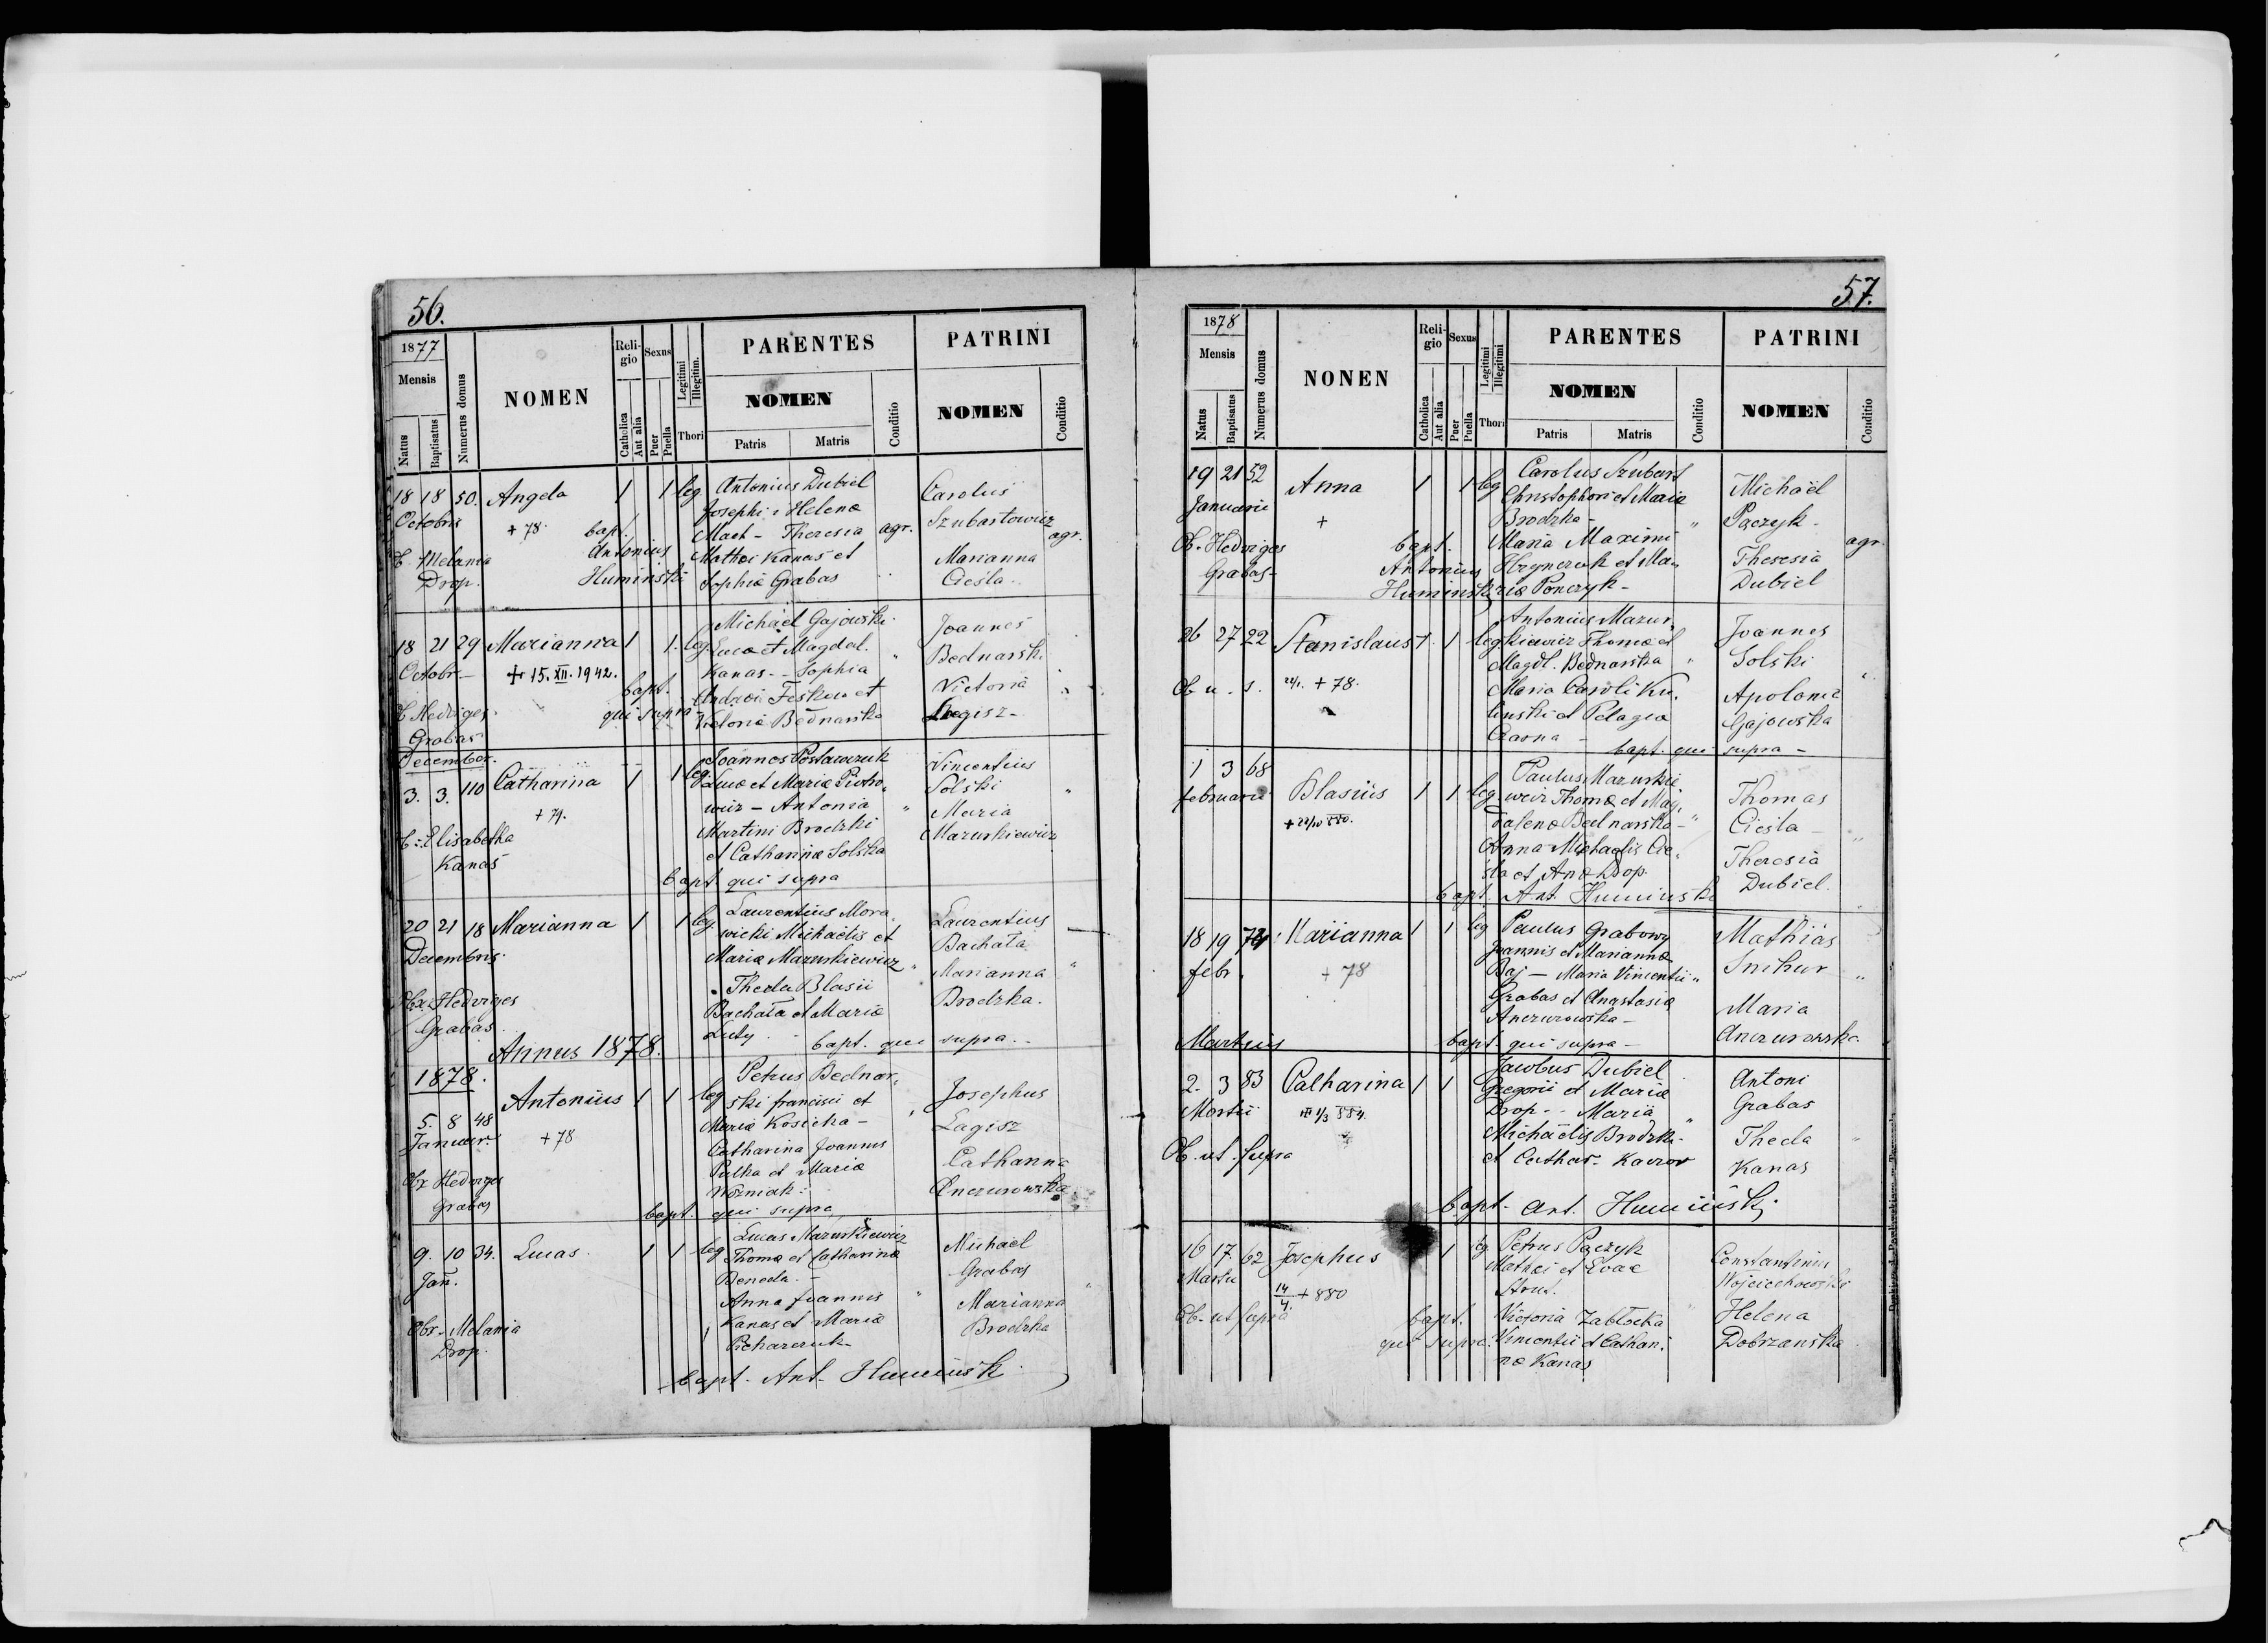 56.
1877
Mensis
Natus
Baptisatus
Numerus domus
NOMEN
Reli-
gio
Catholica
Aut alia
Sexus
Puer
Puella
Legitimi
Illegitim.
Thori
PARENTES
NOMEN
Patris
Matris
Conditio
PATRINI
NOMEN
Conditio
18 18 50. Angela 1 1 leg. Antonius Dubiel Carolus
Octobris + 78. bapt. Josephi et Helena Szubartowicz
Antonius Mact - Theresia agr. Marianna agr.
Melania Huminski Mathei Kanas et Cieśla
Drop. Sophia Grabas
18 21 29 Marianna 1 1. leg. Michael Gajowski Joannes
Octobr- + 15. XII. 1942. Luca et Magdal. Bednarski
bapt. Kanas - Sophia " Victoria
Hedviges qui supra Andrei et Łagisz-
Grabas Victoria Bednarska
December.
3. 3. 110 Catharina 1 1 leg. Joannes Vincentius
+ 79. Luca et Maria Piotro, Solski
Elisabetha wicz - Antonia " Maria "
Kanas Martini Brodzki Mazurkiewicz
et Catharina Solska
bapt. qui supra
20 21 18 Marianna 1 1 leg. Laurentius Mora, Laurentius
Decembris wicki Michaelis et Bachała
Maria Mazurkiewicz " Marianna "
Obx. Hedviges Theda Blasii Brodzka.
Grabas. Bachała et Maria
Luty - bapt. qui supra..
Annus 1878.
1878.
5. 8 48 Antonius 1 1 leg Petrus Bednar, Josephus
Januar. + 78 ski francisci et Łagisz
Maria Kosicka -
Obx Hedviges Catharina Joannis Catharina
Grabas Pulka et Maria Anczurowska
Wozniak:
bapt. qui supra
9. 10 34. Lucas. 1 1 leg Lucas Mazurkiewicz Michael
Jan. Thoma et Catharina Grabas
Beneda. -
Obx. Melania Anna Joannis " Marianna "
Drop. Kanas et Maria Brodzka
Picharczuk-
bapt. Ant. Huminski
57.
1878
Mensis
Natus
Baptisatus
Numerus domus
NONEN
Reli-
gio
Catholica
Aut alia
Sexus
Puer
Puella
Legitimi
Illegitimi
Thori
PARENTES
NOMEN
Patris
Matris
Conditio
PATRINI
NOMEN
Conditio
19 21 52 Anna 1 1 leg Carolus Szubart Michaël
Januarii + Christophori et Maria Pączyk -
Brodzka - "
Ob. Hedviges bapt. Maria Maximi Theresia agr.
Grabas- Antonius Hrynczuk et Ma, Dubiel
Huminski ria Ponczyk -
26 27 22 Stanislaus 1. 1 leg Antonius Mazur, Joannes
+ 78. kiewicz Thoma et Solski
Ob u. s. Magdl. Bednarska " Apolonia "
Maria Caroli Ku. Gajowska
linski et Pelagia
Czarna - bapt. qui supra -
1 3 68 Blasius 1 1 leg. Paulus Mazurkie Thomas
februarii + 22/10 880. wicz Thoma et Mag, Cieśla -
dalena Bednarska - "
Anna Michaelis Cie, Theresia "
sla et Ana Drop. Dubiel.
bapt. Ant. Huminski
18 19 Marianna 1 1 leg Paulus Grabowy Mathias
febr. + 78 Joannis et Marianna Snihur
Baj - Maria Vincentii " "
Grabas et Anastasia Maria
Anczurowska - Anczurowska
bapt. qui supra -
Martius
2. 3 83 Catharina 1 1 Jacobus Dubiel Antoni
Martii Gregorii et Maria Grabas
Drop - - Maria "
Ob. ut supra Michaelis Brodzki- Theda "
et Cathar- Kanas
bapt. Ant. Huminski
16 17. 62 Josephus 1 leg. Petrus Pączyk Constantinus
Martii Mathei et Evae Wojciechowski
14/4. + 880
Ob- ut supra bapt. Victoria Zabłocka " Helena
qui supra. Vincentii et Cathari, Dobrzanska
na Kanas